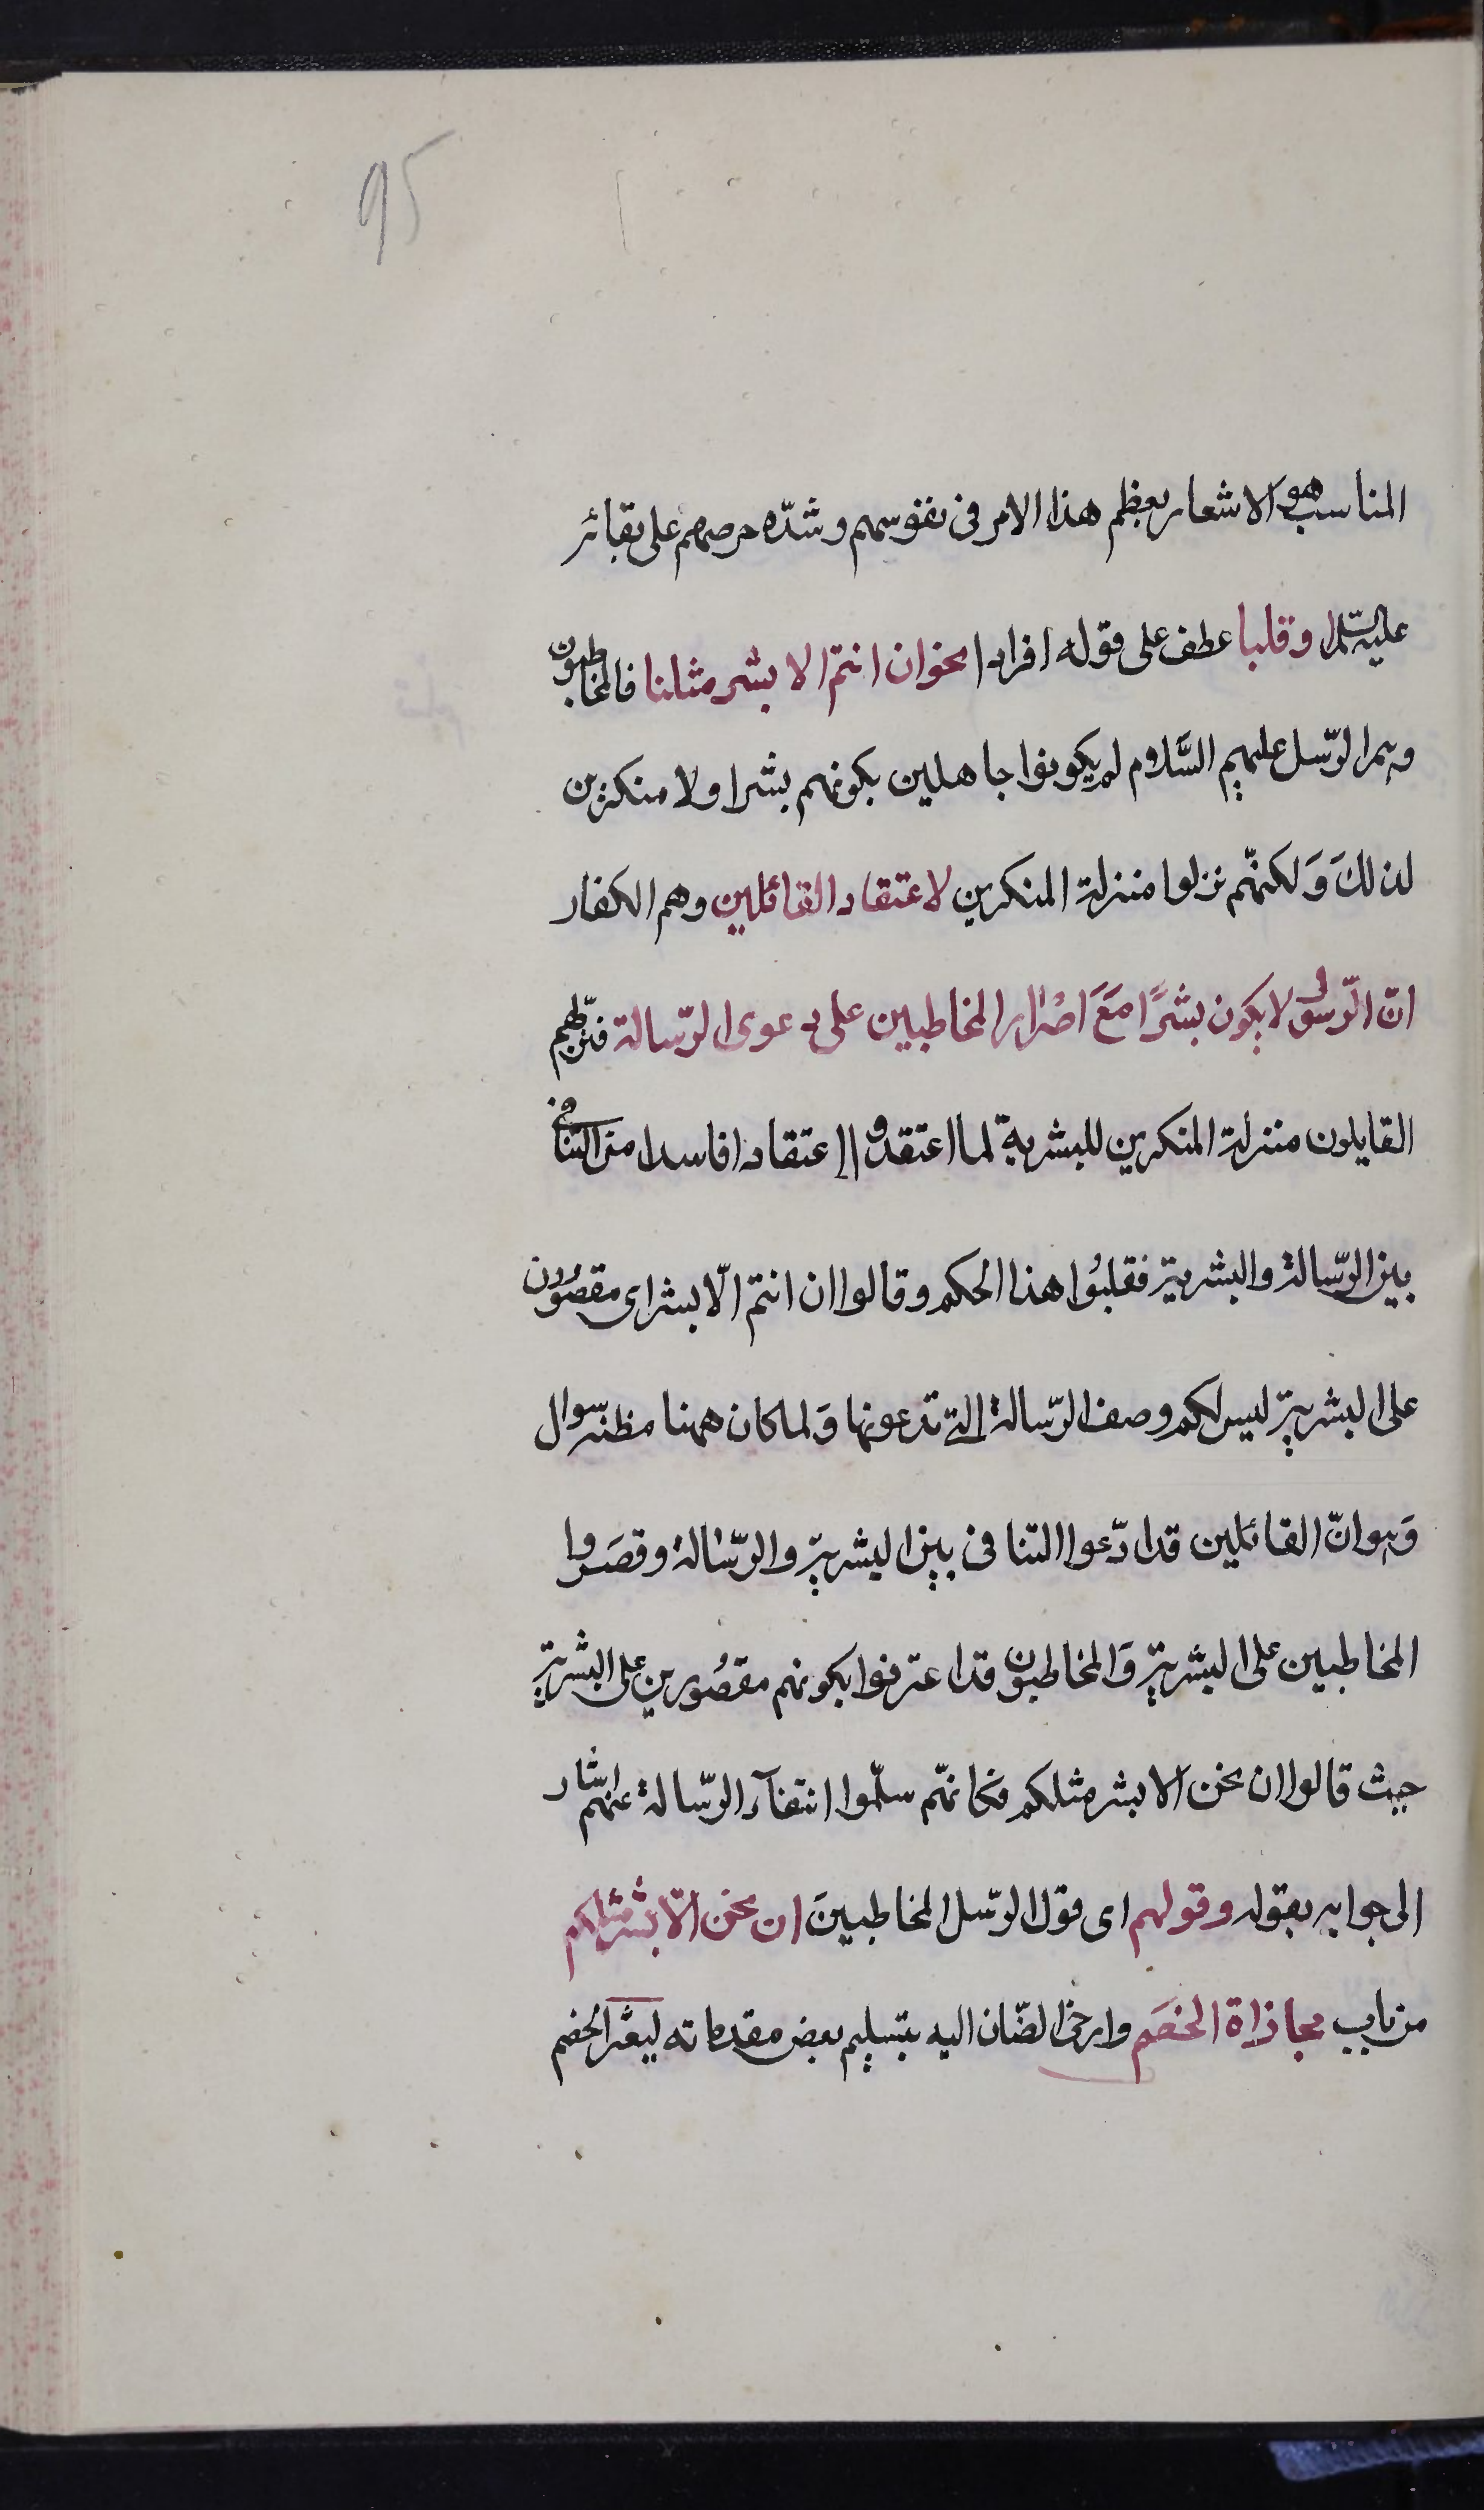 95
المناسب هو الاشعار بعظم هذا الامر فى نفوسهم وشدّه حرصهم على بقائه
عليه السلم وقلبا عطف على قوله افرادا نحو ان انتم الا بشر مثلنا فالمخاطبون
وهم الرّسل عليهم السَّلام لم يكونوا جاهلين بكونهم بشرا ولا منكرين
لذلكَ وَلكنهّم نزلوا منزلة المنكرين لاعتقاد القائلين وهم الكفار
انّ الرّسول لا يكون بشرًا مَعَ اصْرار المخاطبين على دعوى الرّسالة فنزّلهم
القايلون منزلة المنكرين للبشرية لما اعتقدوا اعتقادا فاسدا من التنافى
بين الرّسالة والبشرية فقلبُوا هذا الحكم وقالوا ان انتم الّا بشر اى مقصُورون
على البشرية ليس لكم وصف الرّسالة التى تدعونها وَلما كان ههنا مظنه سوال
وَهو انّ القائلين قد ادّعوا التنافى بين البشرية والرّسالة وقصَروا
المخاطبين على البشرية وَالمخاطبون قد اعترفوا بكونهم مقصُورين على البشرية
حيث قالوا ان نحن الا بشر مثلكم فكانهّم سلّموا انتفآء الرّسالة عنهم اشار
الى جوابه بقوله وقولهم اى قول الرّسل المخاطبينَ ان نحن الّا بشر مثلكم
من باب مجاراة الخصَم وارخى العنان اليه بتسليم بعض مقدماته ليعثر الخصم